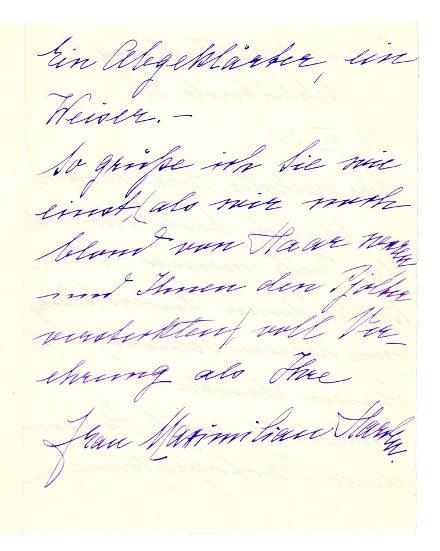 Ein Abgeklärter, ein
Weiser. –
So grüße ich Sie wie
einst, (als wir noch
blond von Haar waren
und Ihnen den
versteckten) voll Ver-
ehrung als Ihre
Frau Maximilian Harden.